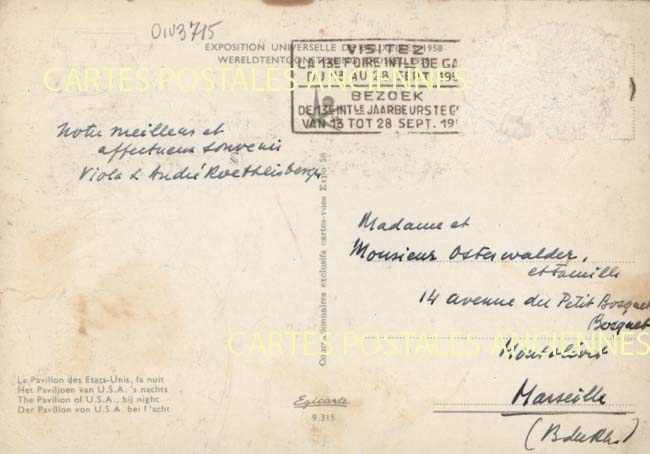 DIV3715
EXPOSITION UNIVERSELLE DE BRUXELLES 1958
WERELDTENTOONSTELLING
VISITEZ
LA 13E FOIRE INTLE DE GA
DU 13 AU 28 SEPT. 19
BEZOEK
DE 13E INTLE JAARBEURS TE G
VAN 13 TOT 28 SEPT. 19
CARTES POSTALES ANCIENNES
Notre meilleur et
affectueux souvenir
Viola & André Roethlisberger
Concessionnaires exclusifs cartes-vues Expo 58
Madame et
Monsieur Osterwalder,
et famille
14 avenue du Petit Bosquet
Bosquet
CARTES POSTALES ANCIENNES
Montolivet
Marseille
(B du Rh.)
Le Pavillon des Etats-Unis, la nuit
Het Paviljoen van U.S.A. 's nachts
The Pavilion of U.S.A., bij night
Der Pavillon von U.S.A. bei l'acht
Egicarte
9.315